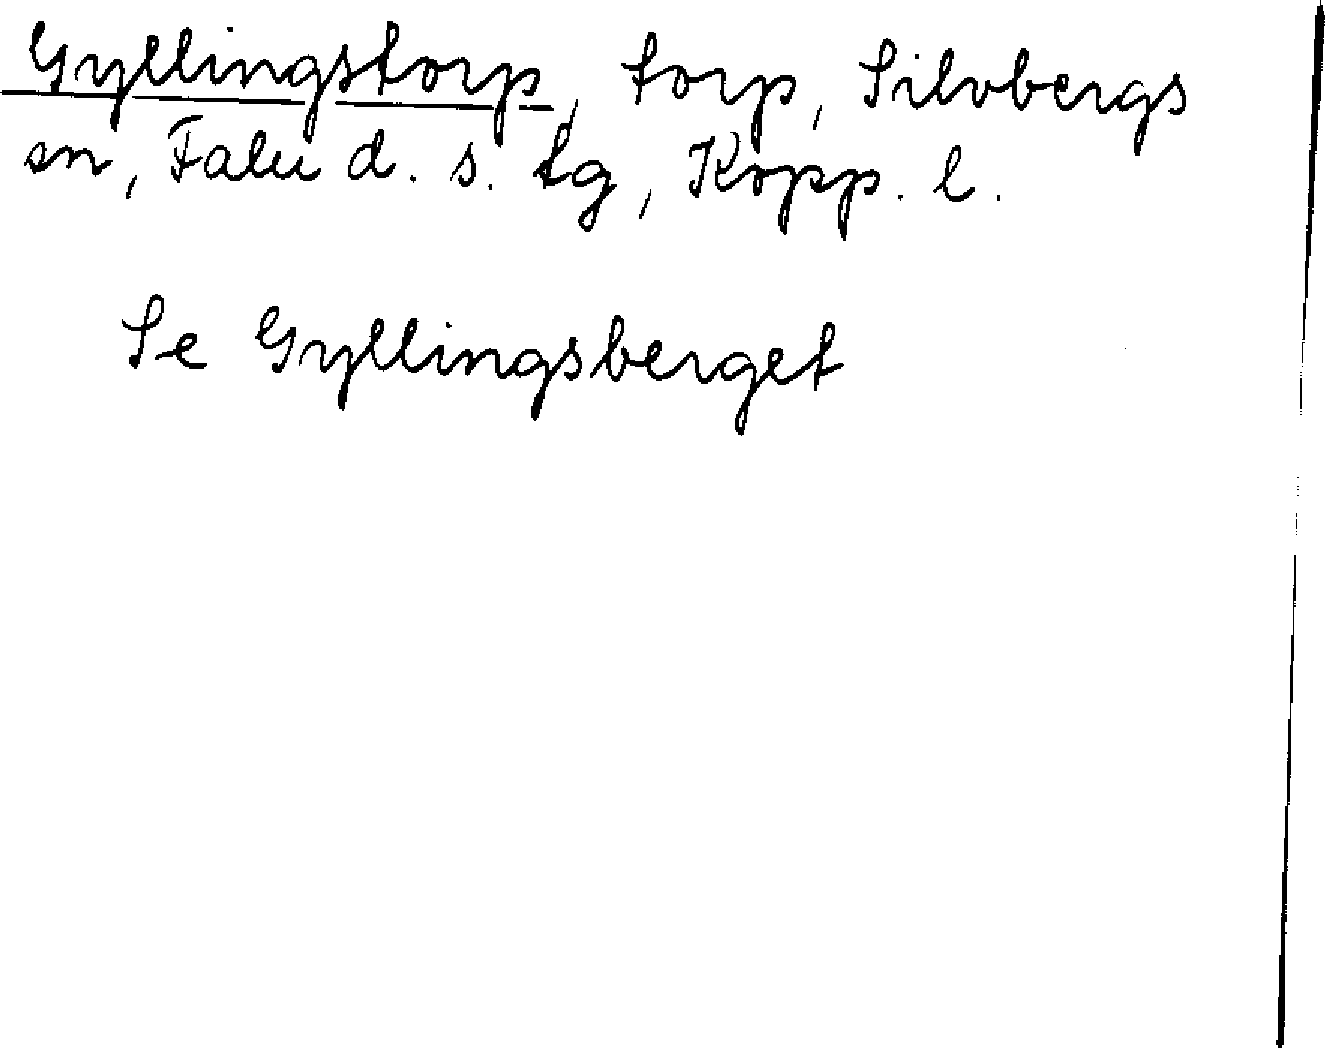 Gyllingstorp, torp, Silvbergs
sn, Falu d. s. tg, Kopp. l.
Se Gyllingsberget